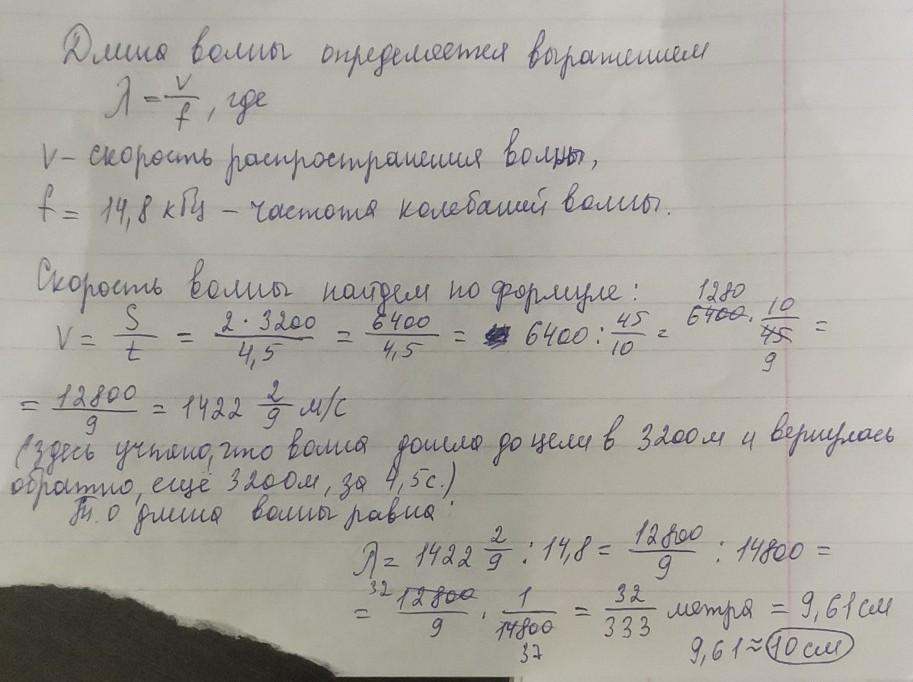 Длина волны определяется выражением
λ = v/f, где
v - скорость распространения волны,
f = 14,8 кГц - частота колебаний волны.
Скорость волны найдем по формуле:
V = S/t = 2·3200/4,5 = 6400/4,5 = 6400 : 45/10 = 1280 6400 · 10/45 9 =
= 12800/9 = 1422 2/9 м/с
(здесь учтено, что волна дошла до цели в 3200м и вернулась
обратно, ещё 3200м, за 4,5с.)
Т.о длина волны равна:
λ = 1422 2/9 : 14,8 = 12800/9 : 14800 =
= 32 12800/9 · 1/14800 37 = 32/333 метра = 9,61 см
9,61 ≈ 10 см